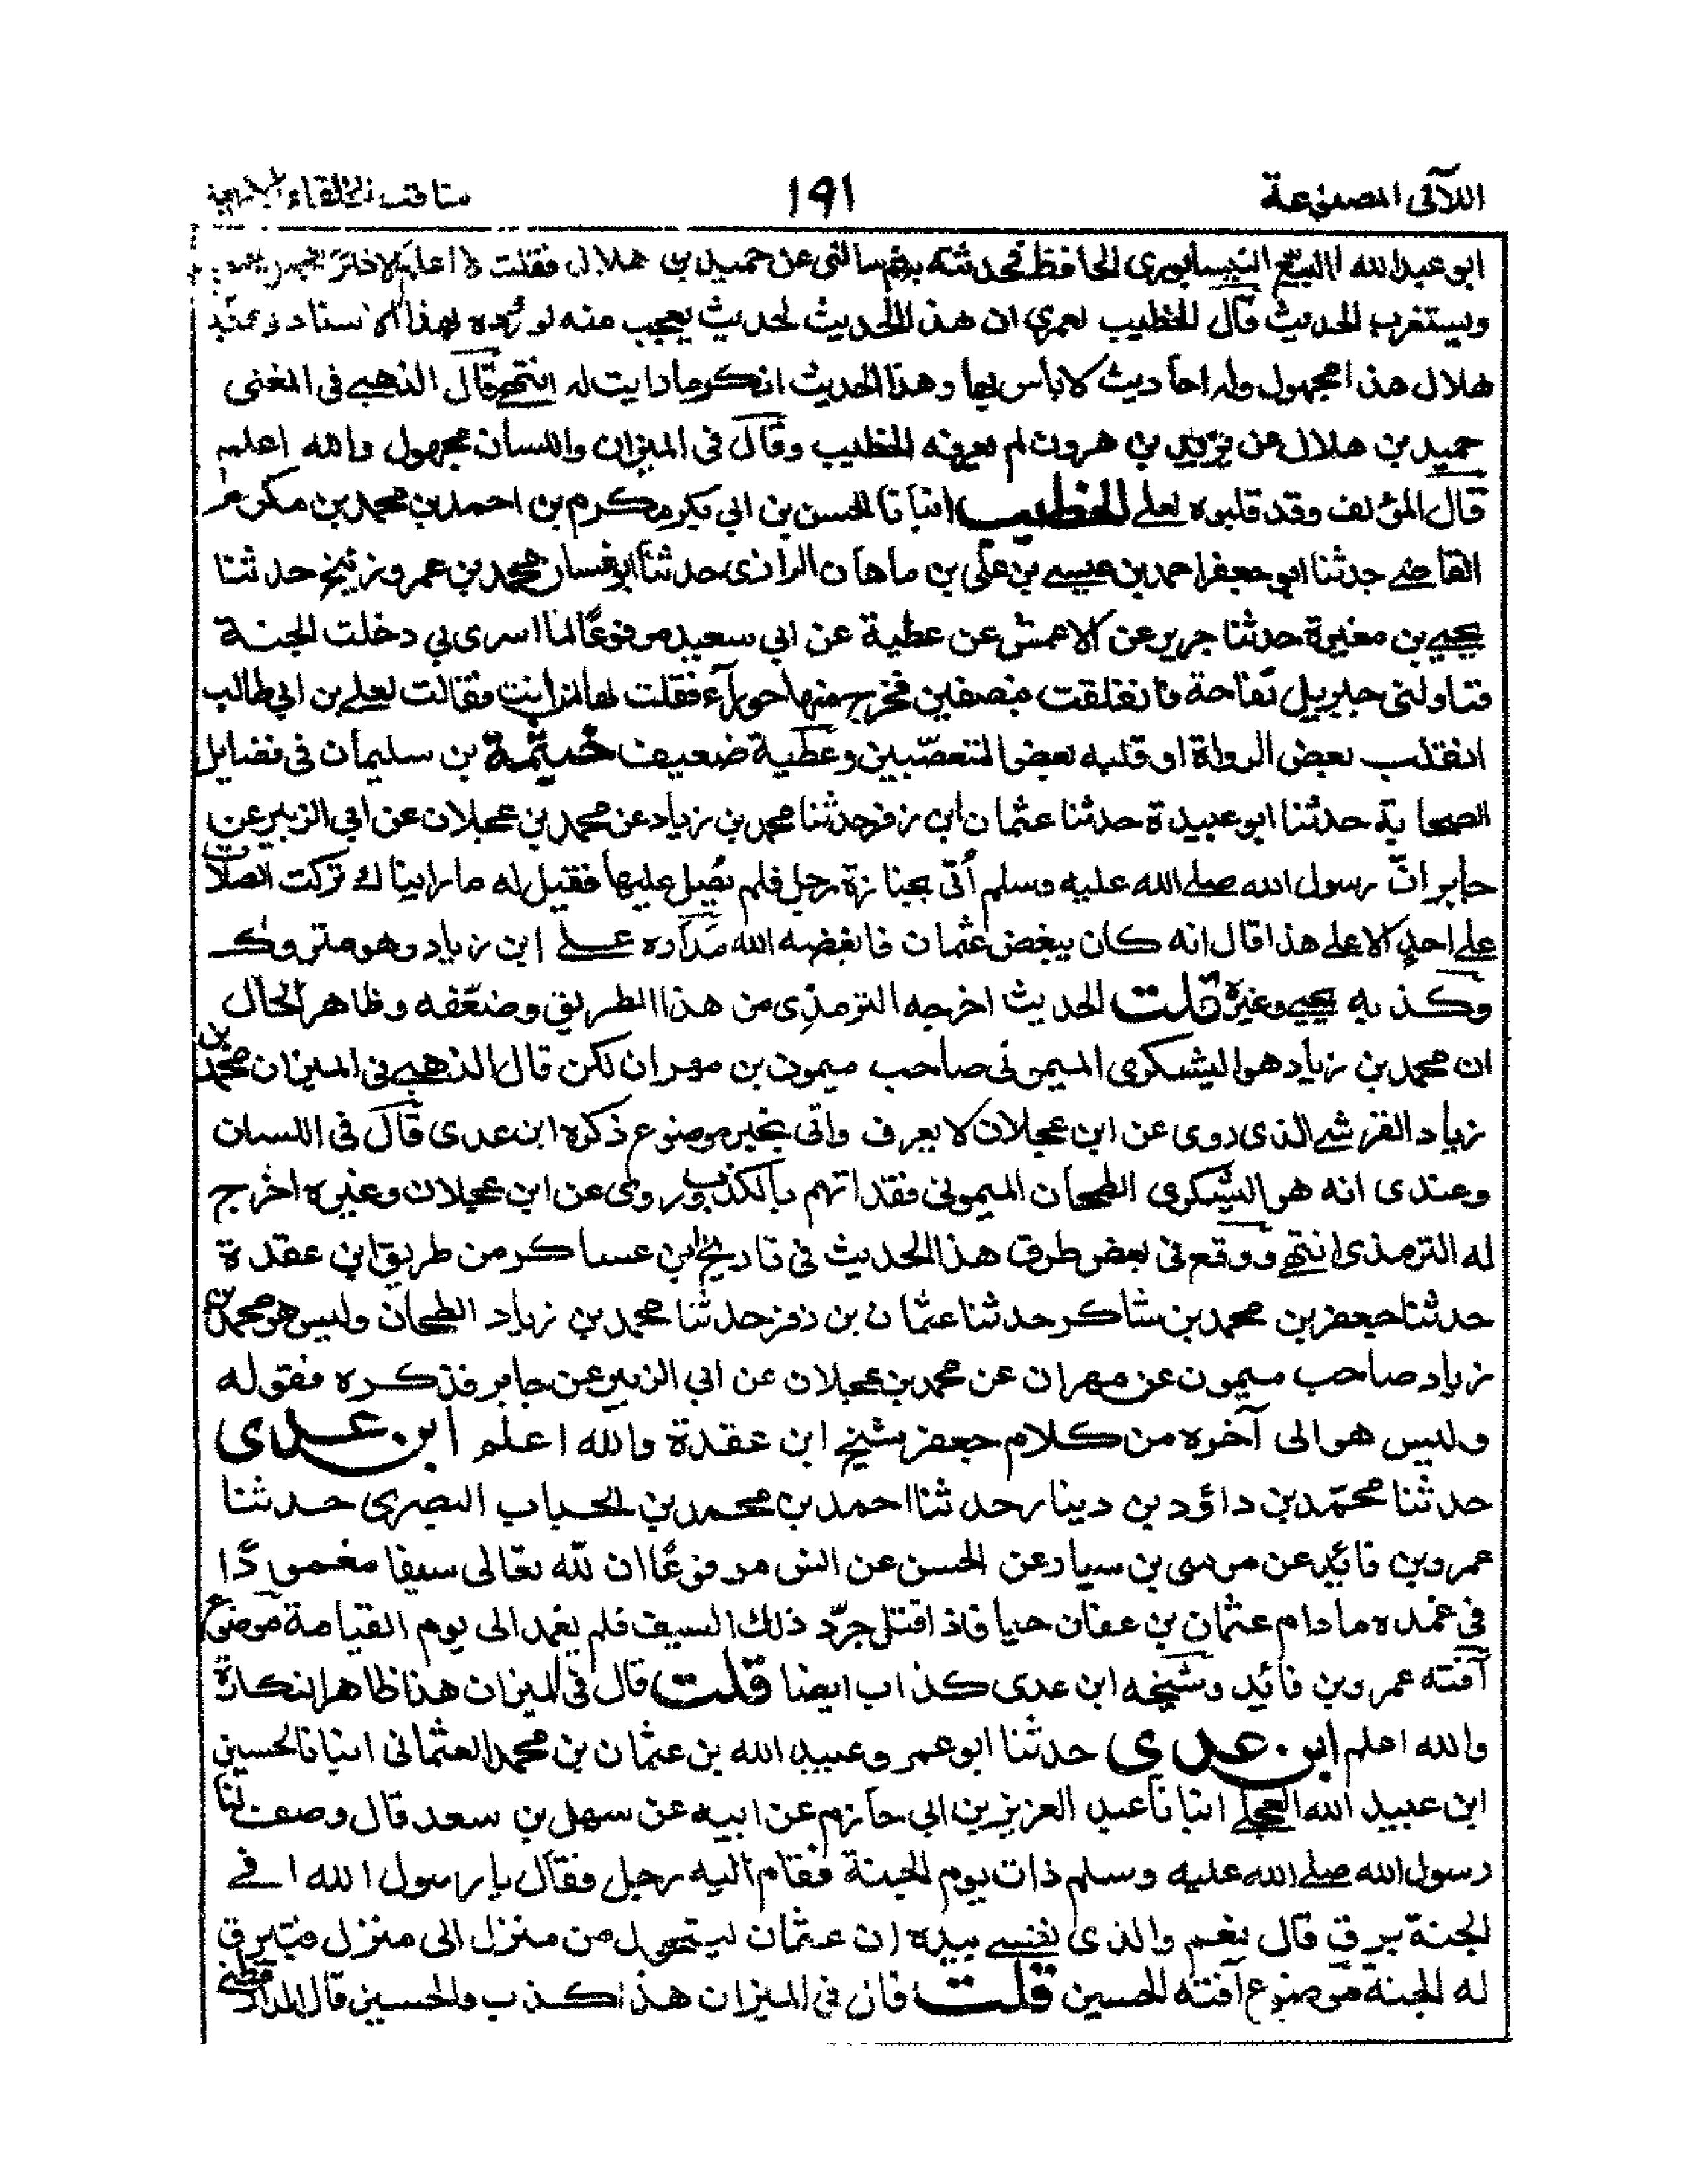 اللآلى المصنوعة ١٩١ مناقب الخلفاء الاربعة
ابو عبد الله البيّع النيسابورى الحافظ فحدثته به ثم سالنى عن حميد بن هلال فقلت لا اعلم
ويستغرب الحديث قال الخطيب لعمرى ان هذا الحديث لحديث يعجب منه لو ركّبه بهذا الاسناد
هلال هذا مجهول وله احاديث لا باس بها وهذا الحديث انكر ما رايت له انتهى قال الذهبى فى المغنى
حميد بن هلال عن يزيد بن هرون لم يعرفه الخطيب وقال فى الميزان واللسان مجهول والله اعلم
قال المؤلف وقد قلبوه لعلى الخطيب انبانا الحسن بن ابي بكر مكرم بن احمد بن محمد بن مكرم
القاضى حدثنا ابو جعفر احمد بن عيسى بن على بن ماهان الرازى حدثنا ابو غسان محمد بن عمرو زنيخ حدثنا
يحيى بن مغيرة حدثنا جرير عن الاعمش عن عطية عن ابي سعيد مرفوعًا لما اسرى بي دخلت الجنة
فناولنى جبريل تفاحة فانفلقت بنصفين فخرج منها حورآء فقلت لها لمن انت فقالت لعلى بن ابي طالب
انقلب بعض الرواة او قلبه بعض المتعصّبين وعطية ضعيف خيثمة بن سليمان فى فضايل
الصحابة حدثنا ابو عبيدة حدثنا عثمان ابن زفر حدثنا محمد بن زياد عن محمد بن عجلان عن ابي الزبير عن
جابر انّ رسول الله صلى الله عليه وسلم أتى بجنازة رجل فلم يُصل عليها فقيل له ما رايناك تركت الصلاة
على احد الا على هذا قال انه كان يبغض عثمان فابغضه الله مداره على ابن زياد وهو متروك
وكذبه يحيى وغيره قلت الحديث اخرجه الترمذى من هذا الطريق وضعّفه وظاهر الحال
ان محمد بن زياد هو اليشكرى الميمونى صاحب ميمون بن مهران لكن قال الذهبى فى الميزان محمد بن
زياد القرشى الذى روى عن ابن عجلان لا يعرف واتى بخبر موضوع ذكره ابن عدى قال فى اللسان
وعندى انه هو اليشكرى الطحان الميمونى فقد اتهم بالكذب وروى عن ابن عجلان وغيره اخرج
له الترمذى انتهى ووقع فى بعض طرق هذا الحديث فى تاريخ ابن عساكر من طريق ابن عقدة
حدثنا جعفر بن محمد بن شاكر حدثنا عثمان بن زفر حدثنا محمد بن زياد الطحان وليس هو محمد بن
زياد صاحب ميمون عن مهران عن محمد بن عجلان عن ابي الزبير عن جابر فذكره فقوله
وليس هو الى آخره من كلام جعفر شيخ ابن عقدة والله اعلم ابن عدى
حدثنا محمّد بن داؤد بن دينار حدثنا احمد بن محمد بن الحباب البصرى حدثنا
عمرو بن فائد عن موسى بن سيار عن الحسن عن انس مرفوعًا ان لله تعالى سيفا مغمودًا
فى غمده ما دام عثمان بن عفان حيا فاذ اقتل جرّد ذلك السيف فلم يغمد الى يوم القيامة موضوع
آفته عمرو بن فائد وشيخه ابن عدى كذاب ايضا قلت قال فى الميزان هذا ظاهر النكارة
والله اعلم ابن عدى حدثنا ابو عمر وعبيد الله بن عثمان بن محمد العثمانى انبانا الحسين
ابن عبيد الله العجلى انبانا عبد العزيز بن ابي حازم عن ابيه عن سهل بن سعد قال وصف لنا
رسول الله صلى الله عليه وسلم ذات يوم الجنة فقام اليه رجل فقال يا رسول الله افى
الجنة برق قال نعم والذى نفسى بيده ان عثمان ليتحول من منزل الى منزل فتبرق
له الجنة موضوع آفته الحسين قلت قال فى الميزان هذا كذب والحسين قال الدارقطنى